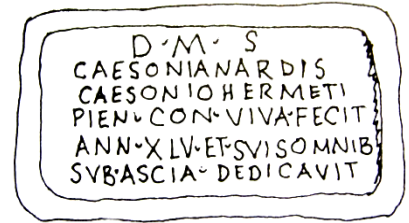 D·M· S
CAESONIANARDIS
CAESONIOHERMETI
PIEN· CON·VIVA·FECIT
ANN·XLV·ET·SVISOMNIB
SVB·ASCIA· DEDICAVIT